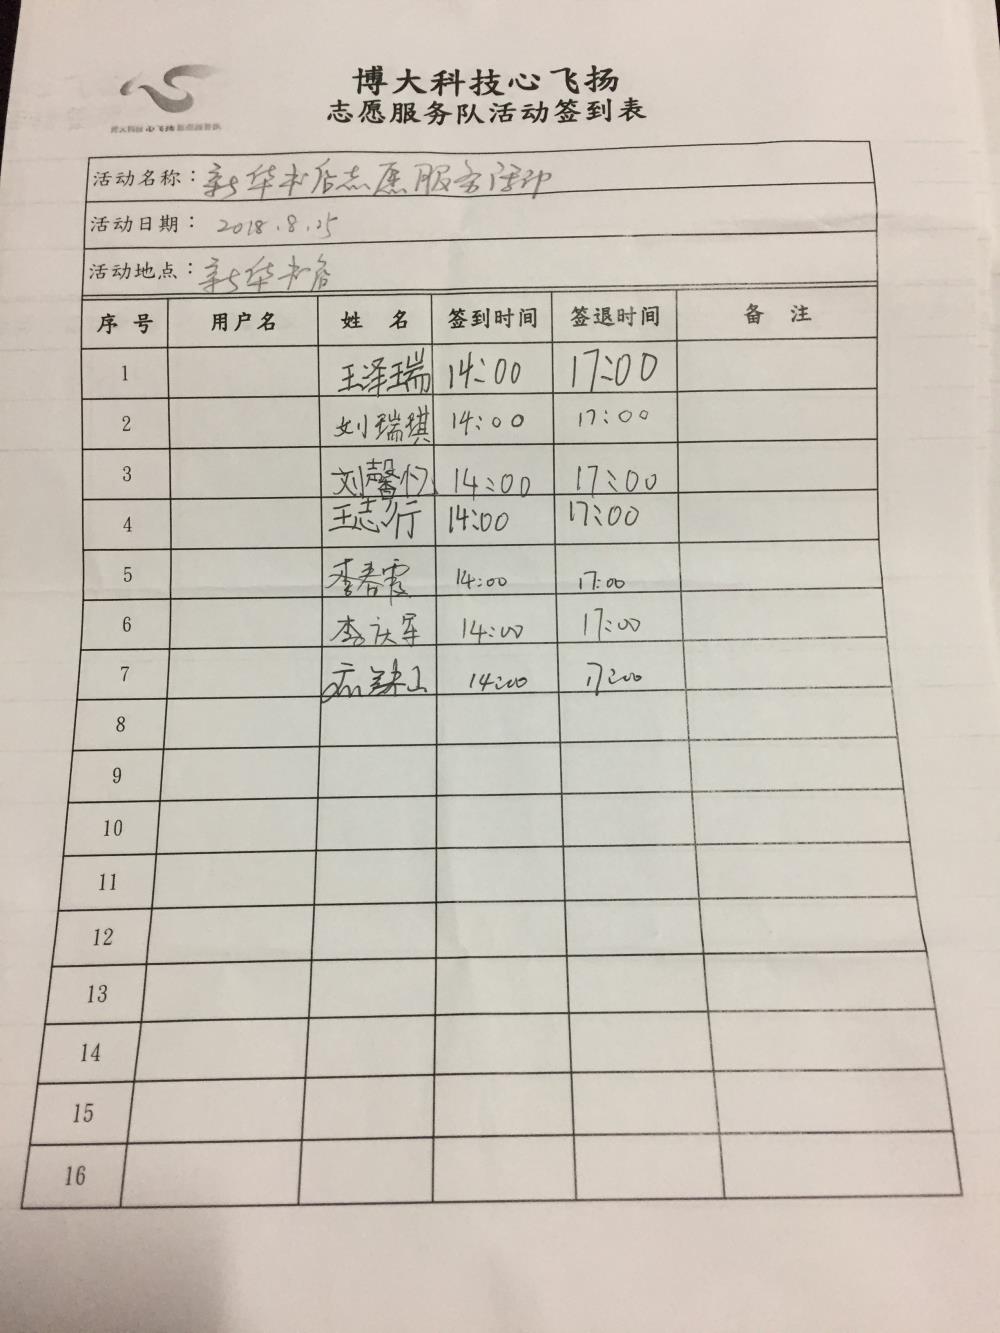 博大科技心飞扬
志愿服务队活动签到表
博大科技 心飞扬 志愿服务队
活动名称：新华书店志愿服务活动
活动日期：2018.8.25
活动地点：新华书店
序号 用户名 姓名 签到时间 签退时间 备注
1 王泽瑞 14:00 17:00
2 刘瑞琪 14:00 17:00
3 刘馨忆 14:00 17:00
4 王志行 14:00 17:00
5 李春霞 14:00 17:00
6 李庆军 14:00 17:00
7 14:00 17:00
8
9
10
11
12
13
14
15
16